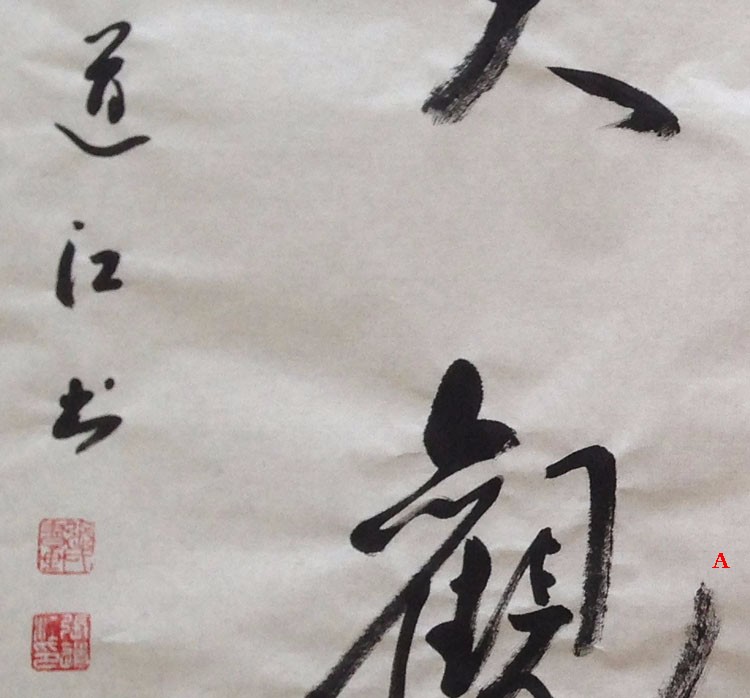 大觀
道江书
A